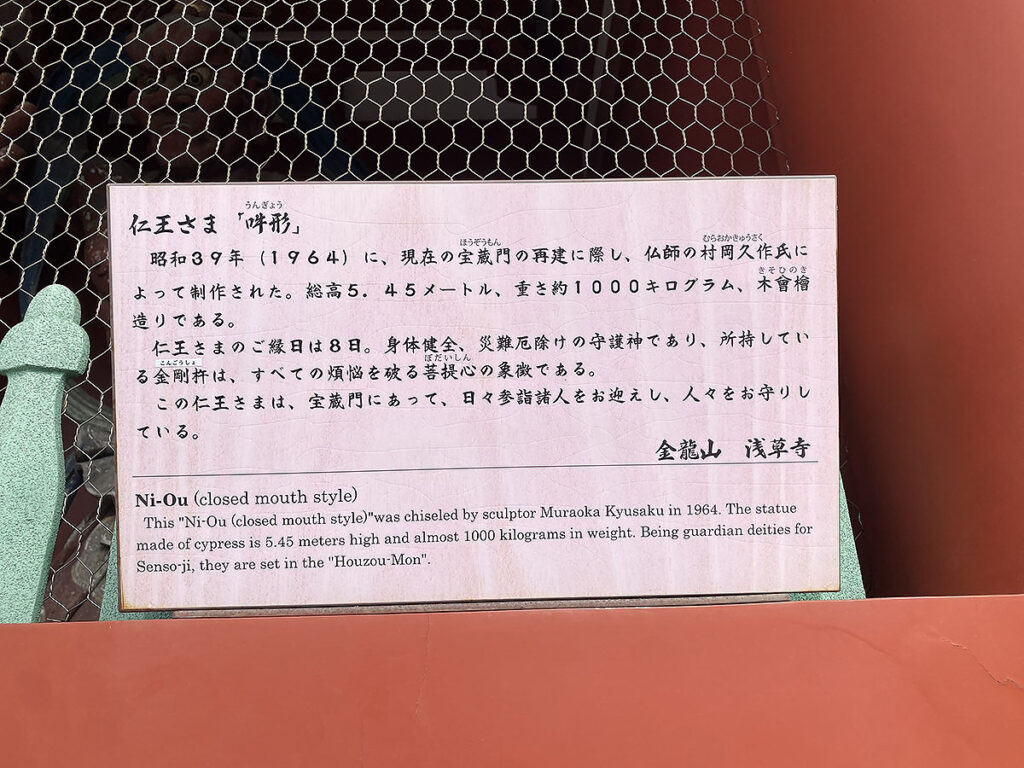 仁王さま「吽形」
うんぎょう
昭和39年（1964）に、現在の宝蔵門の再建に際し、仏師の村岡久作氏に
ほうぞうもん
むらおかきゅうさく
よって制作された。総高5．45メートル、重さ約1000キログラム、木曾檜
きそひのき
造りである。
仁王さまのご縁日は8日。身体健全、災難厄除けの守護神であり、所持してい
る金剛杵は、すべての煩悩を破る菩提心の象徴である。
こんごうしょ
ぼだいしん
この仁王さまは、宝蔵門にあって、日々参詣諸人をお迎えし、人々をお守りし
ている。
金龍山　浅草寺
Ni-Ou (closed mouth style)
This "Ni-Ou (closed mouth style)"was chiseled by sculptor Muraoka Kyusaku in 1964. The statue
made of cypress is 5.45 meters high and almost 1000 kilograms in weight. Being guardian deities for
Senso-ji, they are set in the "Houzou-Mon".